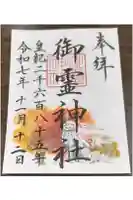 奉拝
御霊神社
皇紀二千六百八十五年
令和七年十一月十一日